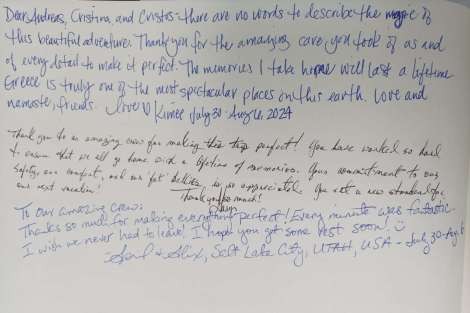 Dear Andreas, Cristina, and Cristos - there are no words to describe the magic of
this beautiful adventure. Thank you for the amazing care, you took of us and
of every detail to make it perfect. The memories I take home will last a lifetime
Greece is truly one of the most spectacular places on this earth. Love and
namaste, friends. Love Kimee July 30 - Aug 6, 2024
Thank you to an amazing crew for making this trip perfect! You have worked so hard
to ensure that we all go home with a lifetime of memories. Your commitment to our
safety, our comfort, and our fat bellies is so appreciated. You set a new standard for
our next vacation! Thank you so much!
To our amazing crew:
Thanks so much for making everything perfect! Every minute was fantastic.
I wish we never had to leave! I hope you got some rest soon! ☺
Salt Lake City, UTAH, USA - July 30 - Aug 6